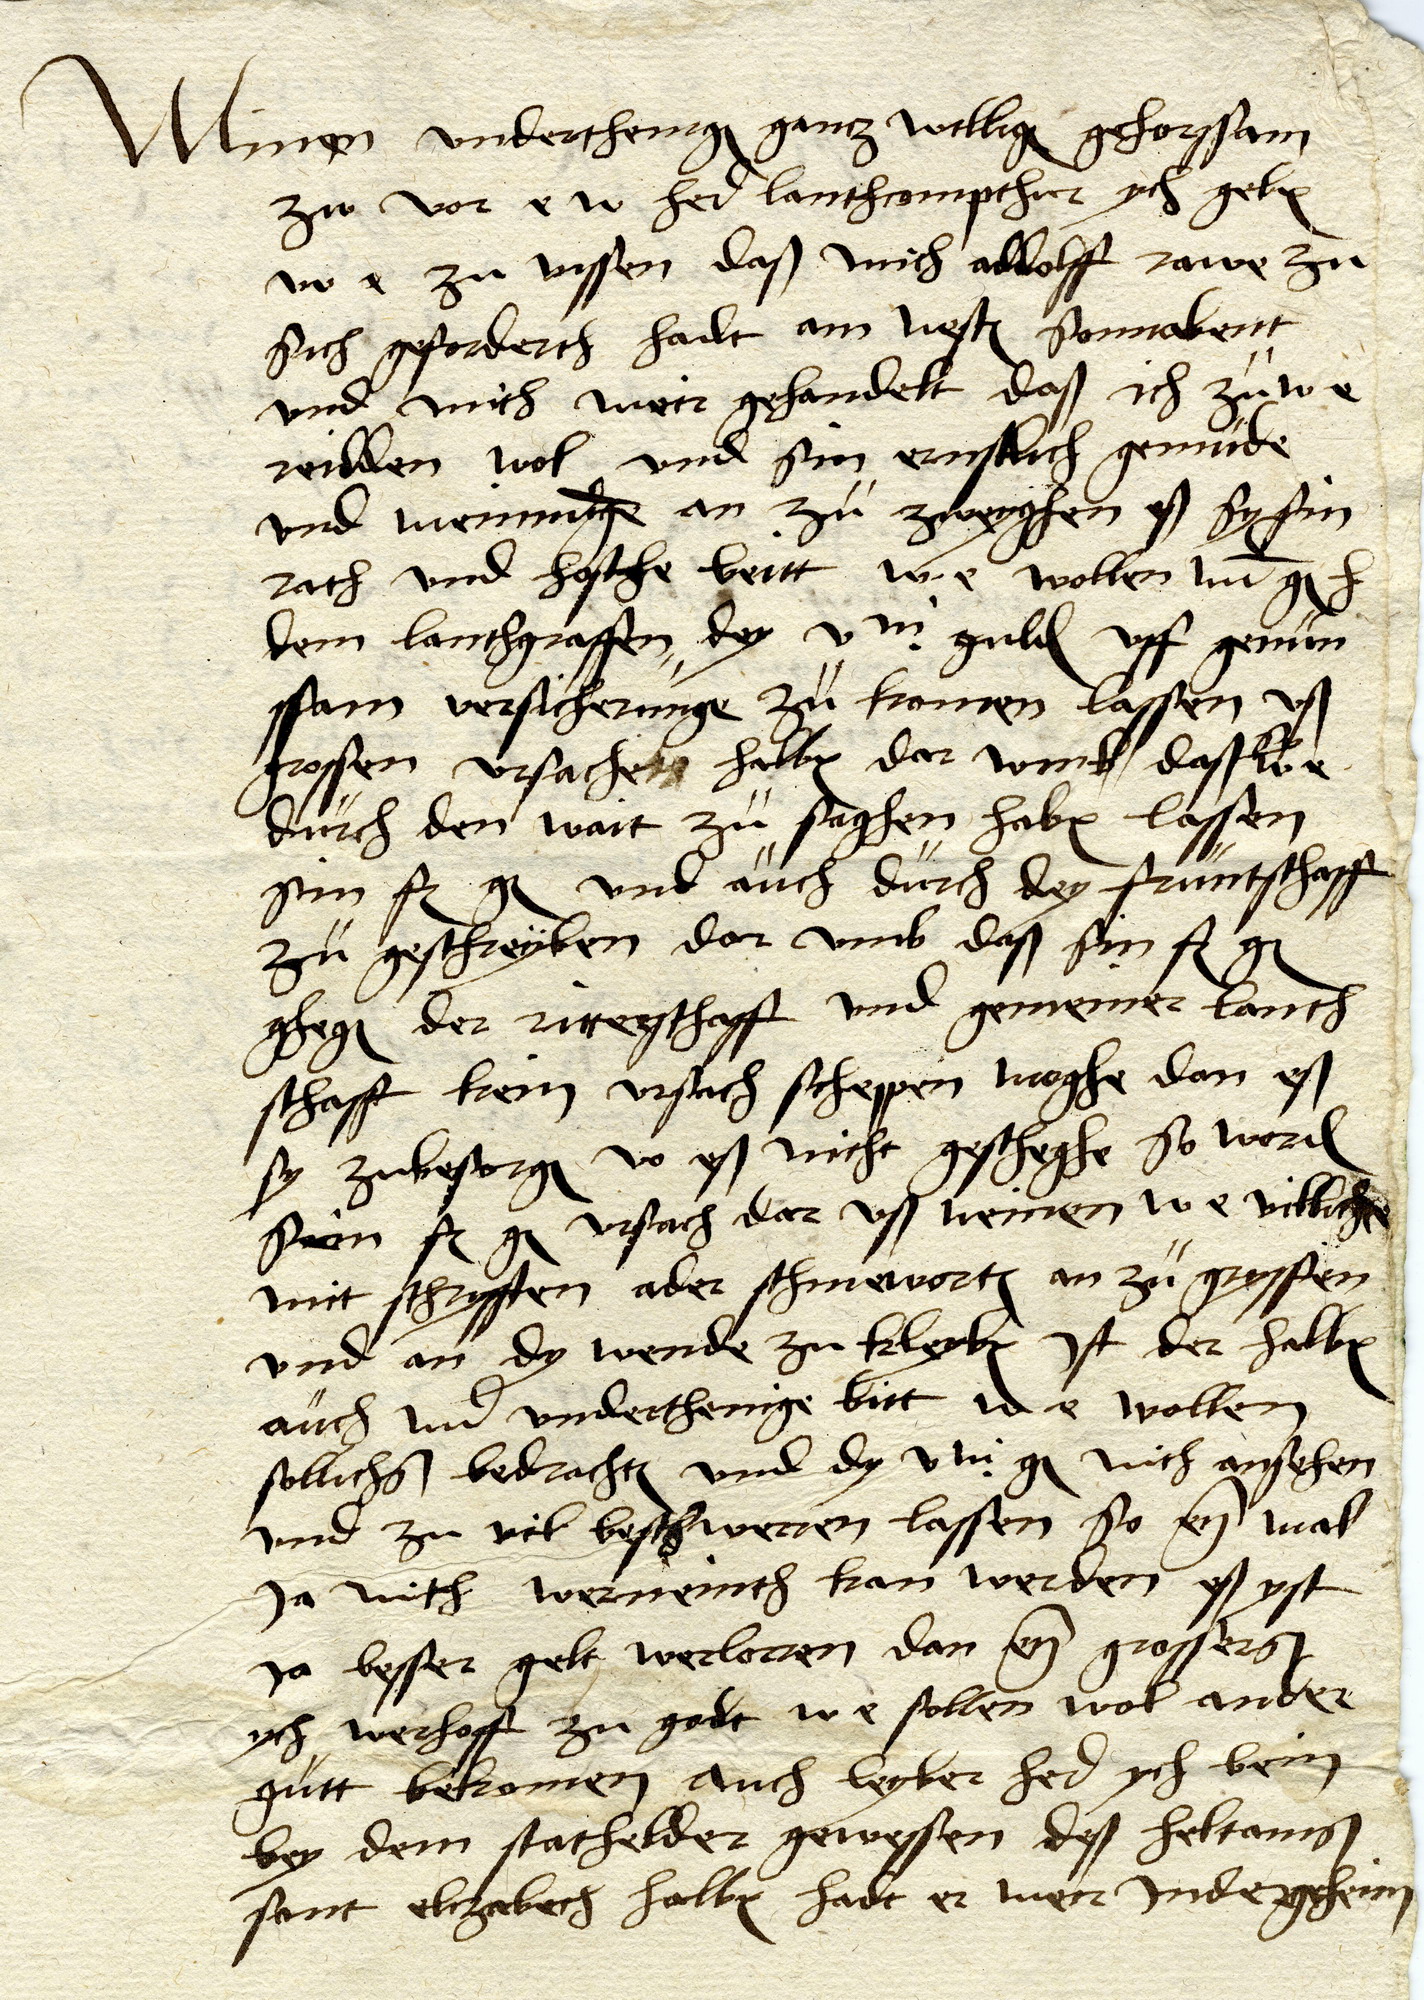 Minen underthenig gantz willig gehorssam
zw vor e w her lanthcompthur ych geb
w e zu wissen daß mich addolff rawe zu
sich geforderth hadt am nest sonnabent
und mich meir gehandelt daß ich zů w e
reidden wol und sin ernstlich gemude
und meinunge an zů zeyghen eß sy sin
rath und hoche beitt w e wollen m g h
dem lanthgraffen dey v m guld uff genun
ssam versicherůnge zů komen lassen uß
grossen ursachen halb dar umb daß w e
důrch den wait zů saghen hab lassen
sin f g und aůch důrch dey frůntschafft
zů geschreyben dar umb daß sin f g
gheg der ritterschafft und gemeiner lanth
schafft kein ursach scheppen moghe dan eß
sy zubesorg wo eß nicht gescheghe so word
sein f g ursach dar uß neimen w e villichte
mit schryfften ader schmewort an zů gryffen
und an dy wende zu kleyb ist der halb
aůch m underthenige bitt w e wollen
sollichs bedracht und dy v m g nich ansehen
und zu vil beschwerren lassen so ey mal
ja nith werneinth kan werden eß yst
ja besser gelt werlorren dan ey grossers
ych werhoff zu godt w e sollen wol ander
gůtt bekomen auch leyber her ych bein
bey dem stathelder gewessen deß heltamß
sant elizabeth halb hadt er meir indergeheim